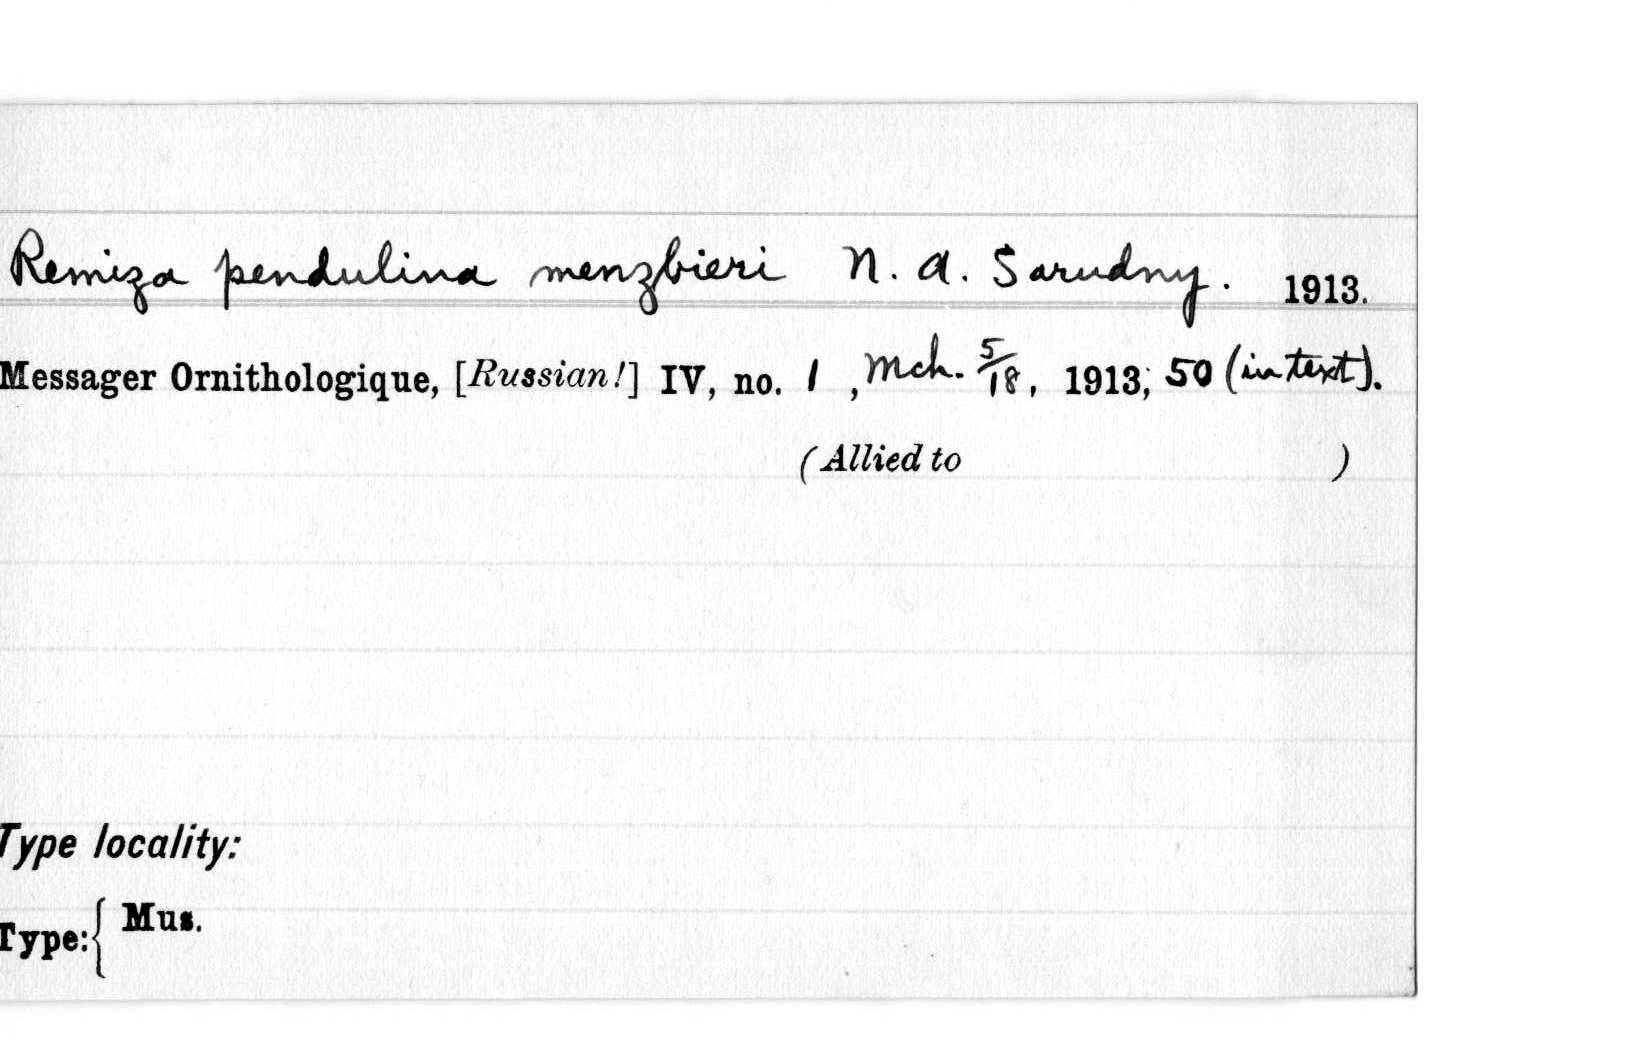 Remiza pendulina menzbieri N. A. Sarudny. 1913.
Messager Ornithologique, [Russian!] IV, no. 1, Mch. 5/18, 1913; 50 (in text).
(Allied to )
Type locality:
Type: { Mus.